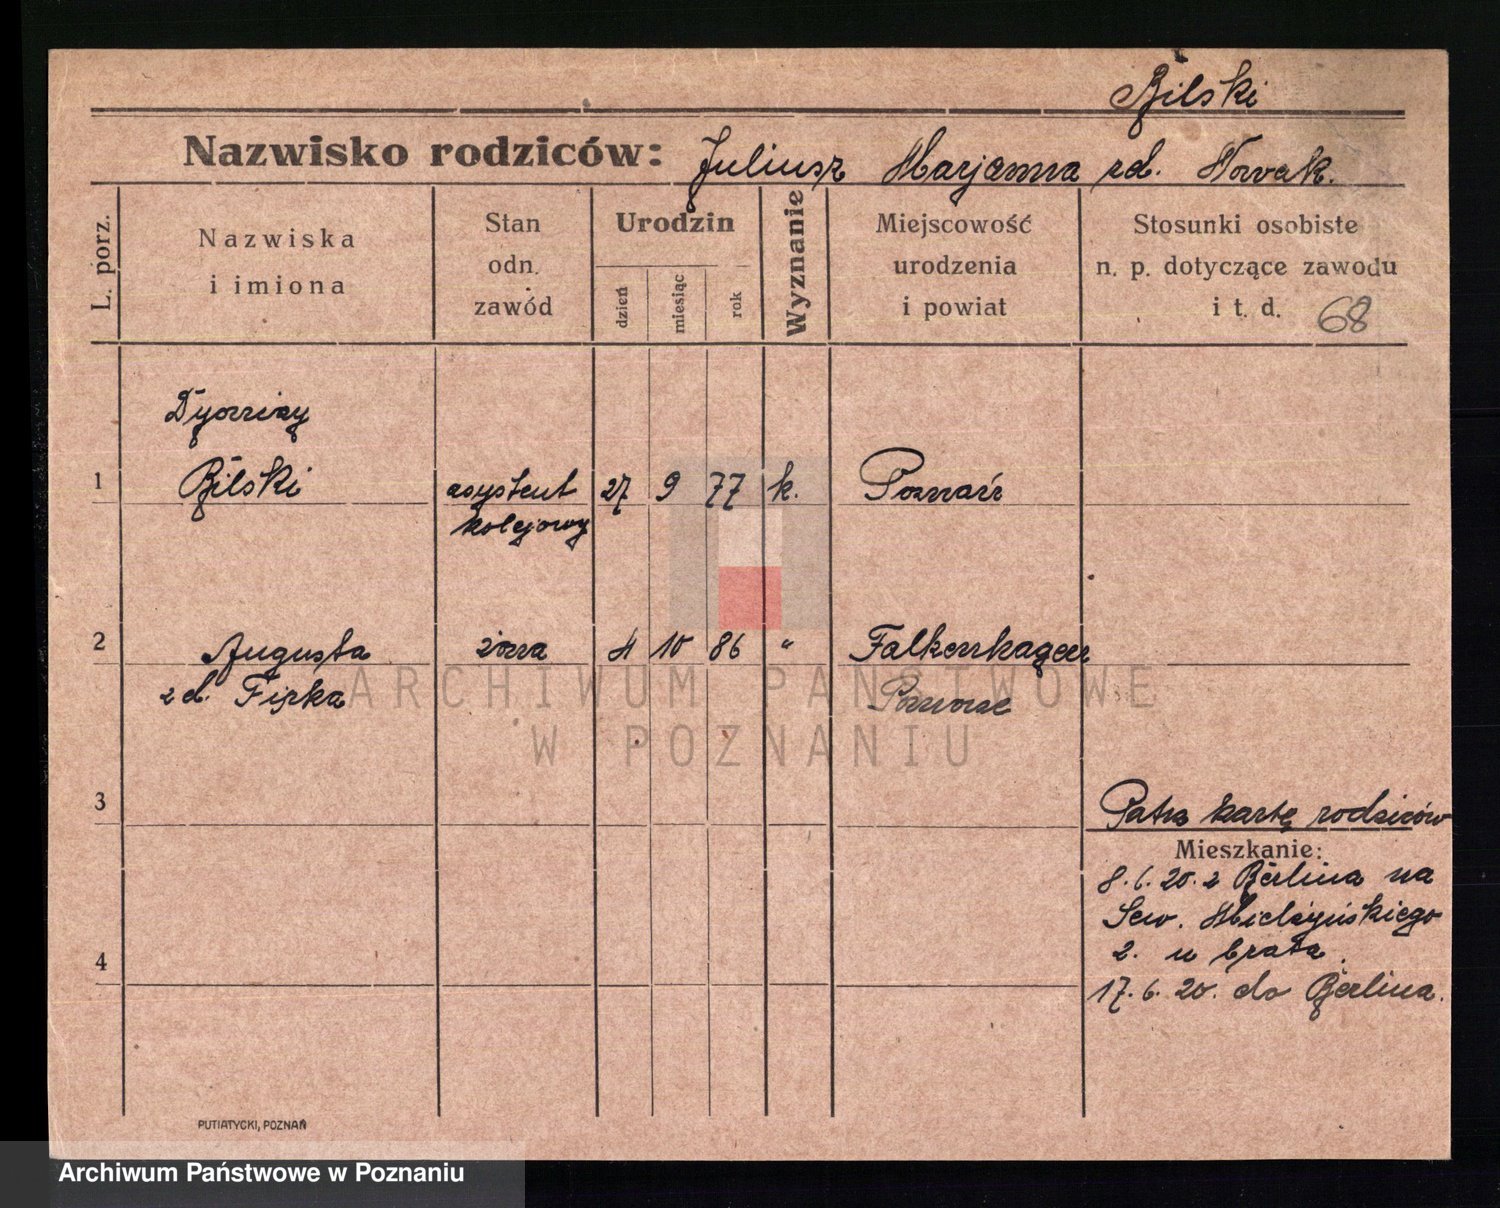 Bilski
Nazwisko rodziców: Juliusz Marjanna zd. Nowak.
L. porz.
Nazwiska
i imiona
Stan
odn.
zawód
Urodzin
dzień
miesiąc
rok
Wyznanie
Miejscowość
urodzenia
i powiat
Stosunki osobiste
n. p. dotyczące zawodu
i t. d. 68
Dyonizy
1 Bilski asystent 27 9 77 k. Poznań
kolejowy
2 Augusta żona 4 10 86 " Falkenhagen
zd. Fipka Pomorze
ARCHIWUM PAŃSTWOWE
W POZNANIU
3 Patrz kartę rodziców
Mieszkanie:
8.6.20. z Berlina na
Sew. Mielżyńskiego
4 2. u brata.
17.6.20. do Berlina.
PUTIATYCKI, POZNAŃ
Archiwum Państwowe w Poznaniu